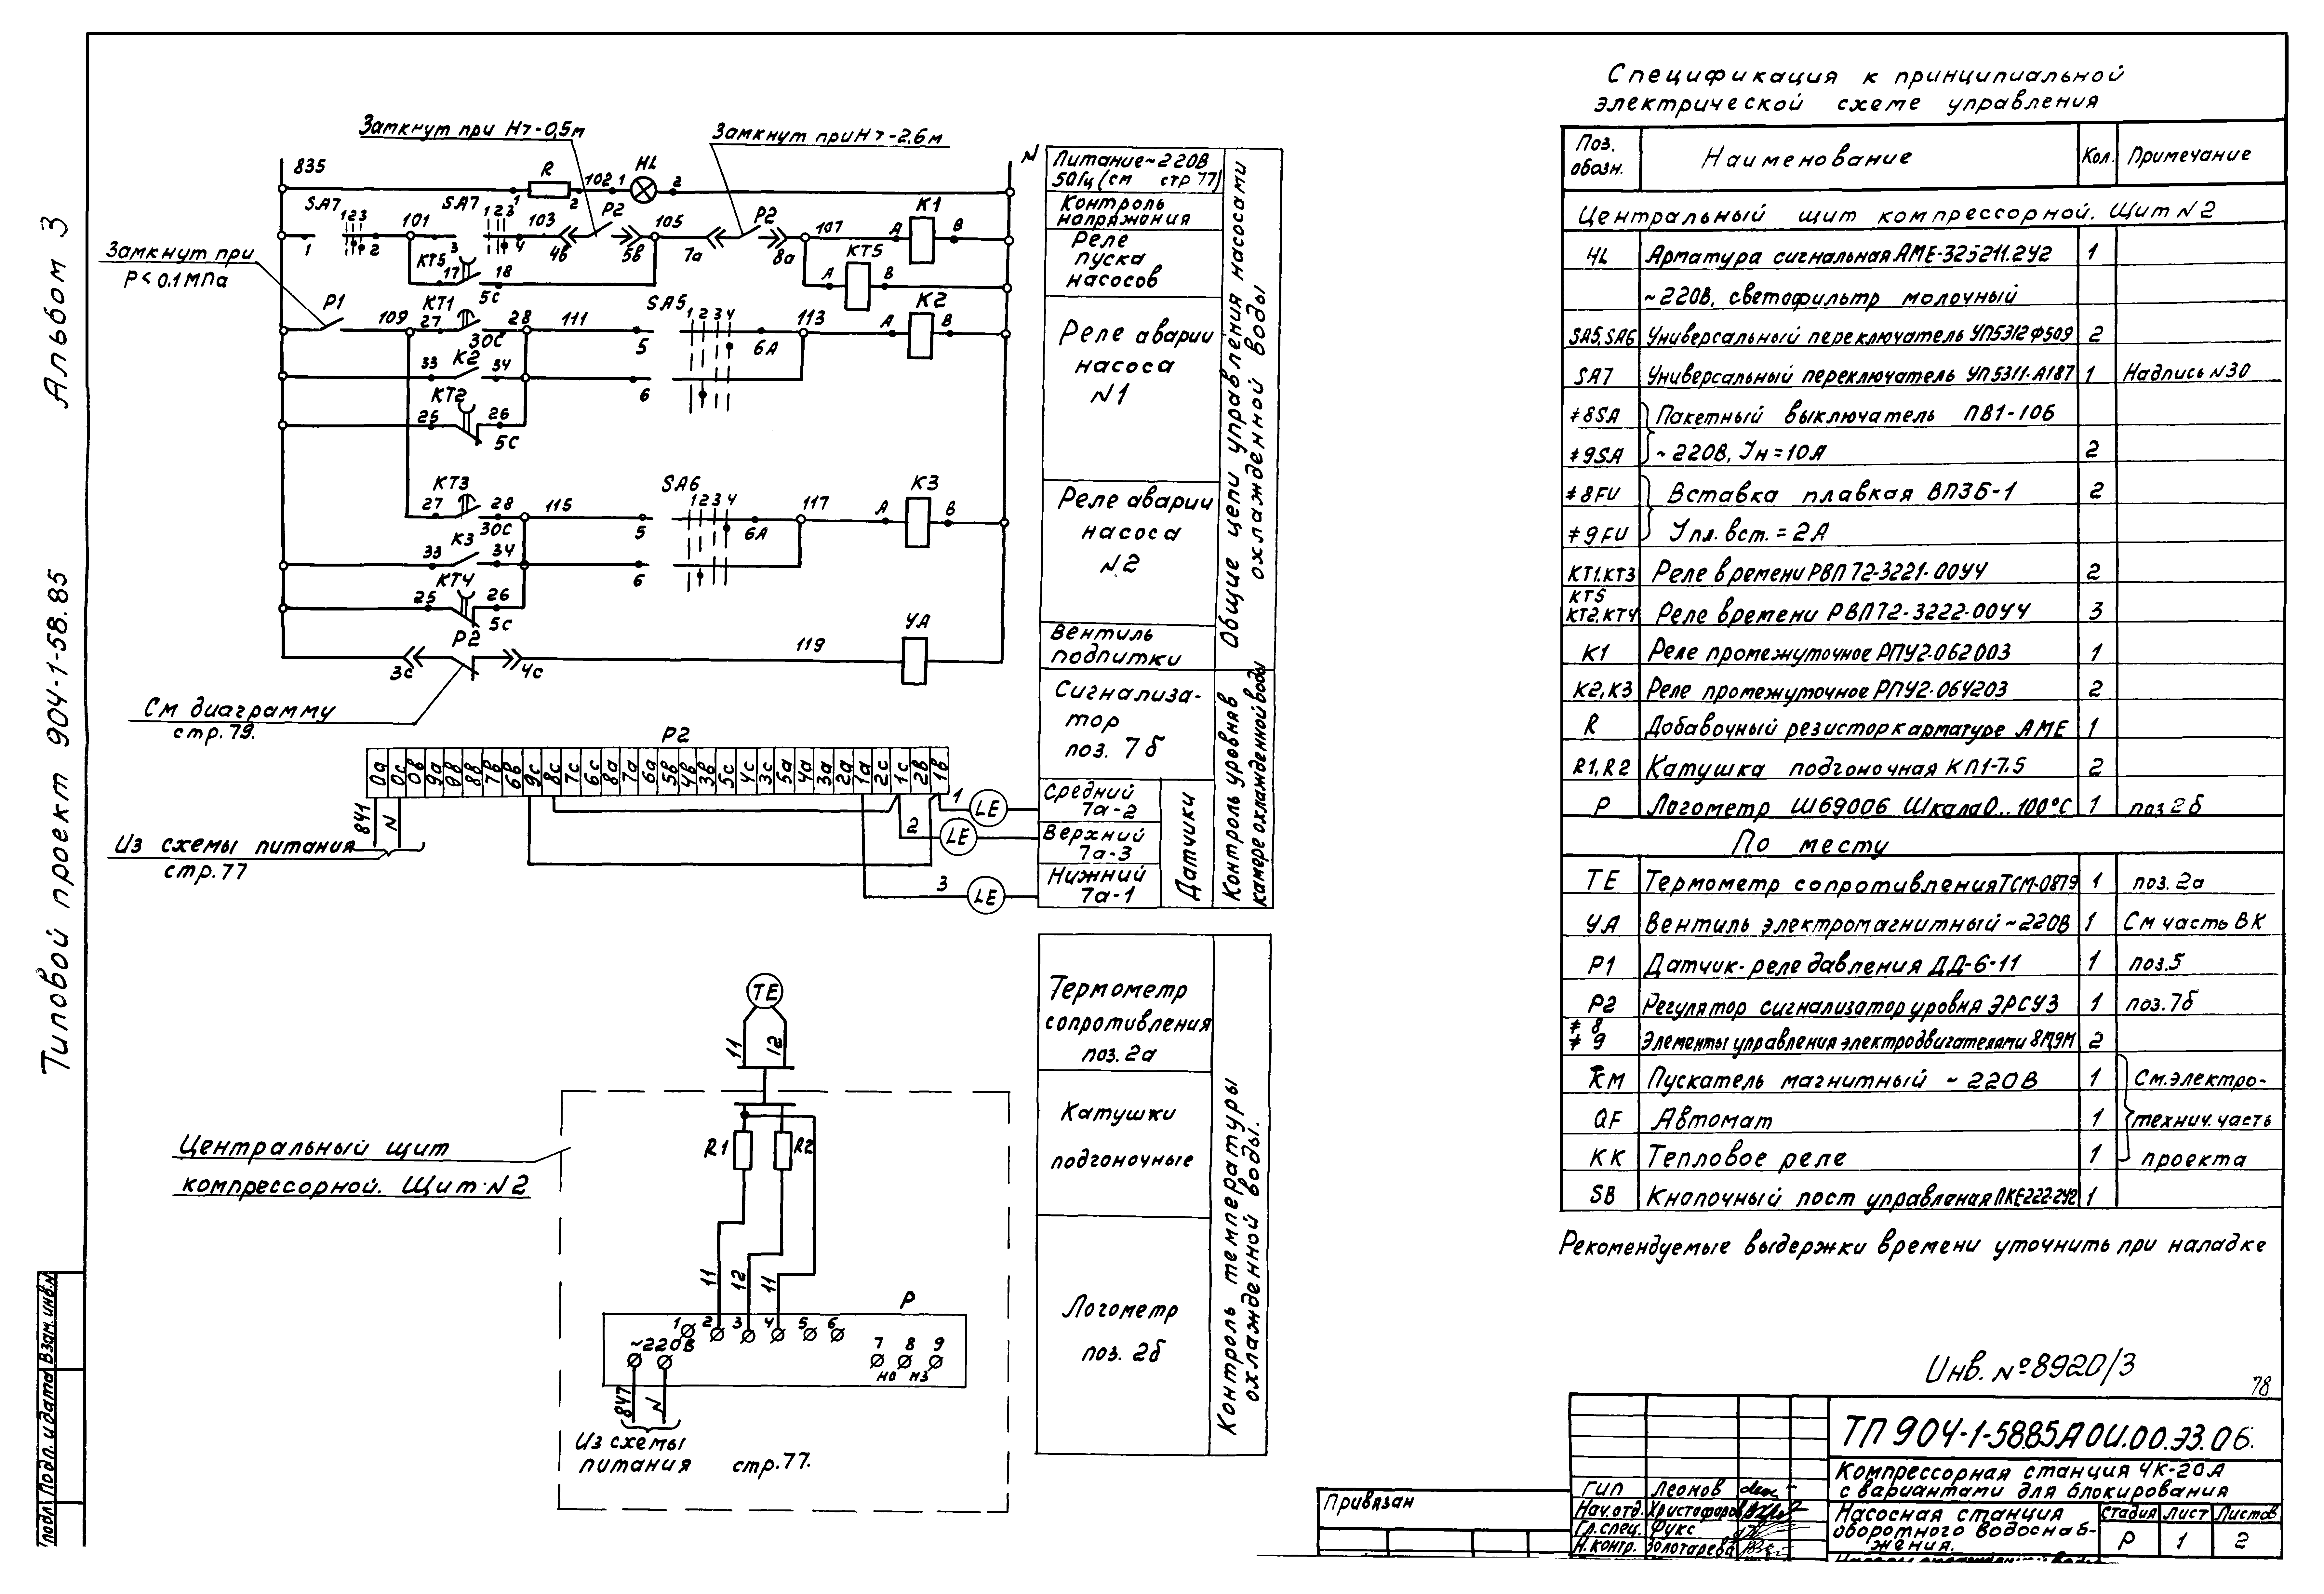 Альбом 3
Типовой проект 904-1-58.85
Взам. инв.N
Подп. и дата
подл.
Замкнут при Н>-0,5м
Замкнут при Н>-2.6м
835
R
102
1
HL
2
N
1
2
SA7
1 2 3
101
SA7
1 2 3
103
P2
105
P2
107
K1
1
2
3
4
4в
5в
7а
8а
A
B
Замкнут при
Р<0.1МПа
КТ5
17
18
5с
КТ5
A
B
P1
109
КТ1
27
28
30С
111
SA5
1 2 3 4
5
6А
113
K2
A
B
K2
33
34
6
КТ2
25
26
5С
КТ3
27
28
30С
115
SA6
1 2 3 4
5
6А
117
K3
A
B
K3
33
34
6
КТ4
25
26
5с
P2
3с
4с
119
УА
См диаграмму
стр.79.
Питание~220В
50Гц (см стр 77)
Контроль
напряжения
Реле
пуска
насосов
Реле аварии
насоса
N1
Реле аварии
насоса
N2
Вентиль
подпитки
Общие цепи управления насосами
охлажденной воды
Сигнализа-
тор
поз. 7б
Средний
7а-2
Верхний
7а-3
Нижний
7а-1
Датчики
Контроль уровня в
камере охлажденной воды
P2
0а 0с 0в 9а 9в 8в 7в 6в 9с 8с 7с 6с 8а 7а 6а 5в 4в 3в 5с 4с 3с 5а 4а 3а 2а 1а 2с 1с 2в 1в
841
N
Из схемы питания
стр.77
1
LE
2
LE
3
LE
TE
11
12
Центральный щит
компрессорной. Щит N2
R1
R2
11
12
11
P
1 2 3 4 5 6
~220В
7 8 9
МО МЗ
847
N
Из схемы
питания стр.77.
Термометр
сопротивления
поз. 2а
Катушки
подгоночные
Логометр
поз. 2б
Контроль температуры
охлажденной воды.
Спецификация к принципиальной
электрической схеме управления
Поз. обозн. Наименование Кол. Примечание
Центральный щит компрессорной. Щит N2
HL Арматура сигнальная АМЕ-325211.2У2 1
~220В, светофильтр молочный
SA5,SA6 Универсальный переключатель УП5312Ф509 2
SA7 Универсальный переключатель УП5311-А187 1 Надпись N30
≠8SA Пакетный выключатель ПВ1-10Б
≠9SA ~220В, Iн=10А 2
≠8FU Вставка плавкая ВПЗБ-1 2
≠9FU Iпл.вст.=2А
КТ1,КТ3 Реле времени РВП72-3221-00У4 2
КТ5
КТ2,КТ4 Реле времени РВП72-3222-00У4 3
K1 Реле промежуточное РПУ2-062003 1
K2,K3 Реле промежуточное РПУ2-064203 2
R Добавочный резистор к арматуре АМЕ 1
R1,R2 Катушка подгоночная КП1-7.5 2
P Логометр Ш69006 Шкала 0...100°С 1 поз 2б
По месту
TE Термометр сопротивления ТСМ-0879 1 поз. 2а
УА Вентиль электромагнитный ~220В 1 См часть ВК
P1 Датчик-реле давления ДД-6-11 1 поз.5
P2 Регулятор сигнализатор уровня ЭРСУЗ 1 поз.7б
≠ 8
≠ 9 Элементы управления электродвигателями 8М,9М 2
КМ Пускатель магнитный ~220В 1 См.электро-
QF Автомат 1 технич.часть
КК Тепловое реле 1 проекта
SB Кнопочный пост управления ПКЕ222-2У2 1
Рекомендуемые выдержки времени уточнить при наладке
Инв. №8920/3
78
ТП 904-1-58.85 А ОИ.00.ЭЗ.06.
Компрессорная станция ЧК-20А
с вариантами для блокирования
Насосная станция
оборотного водоснаб-
жения.
Стадия Лист Листов
Р 1 2
ГИП Леонов
Нач.отд. Христофоров
Гл.спец. Фукс
Н.контр. Золотарева
Привязан